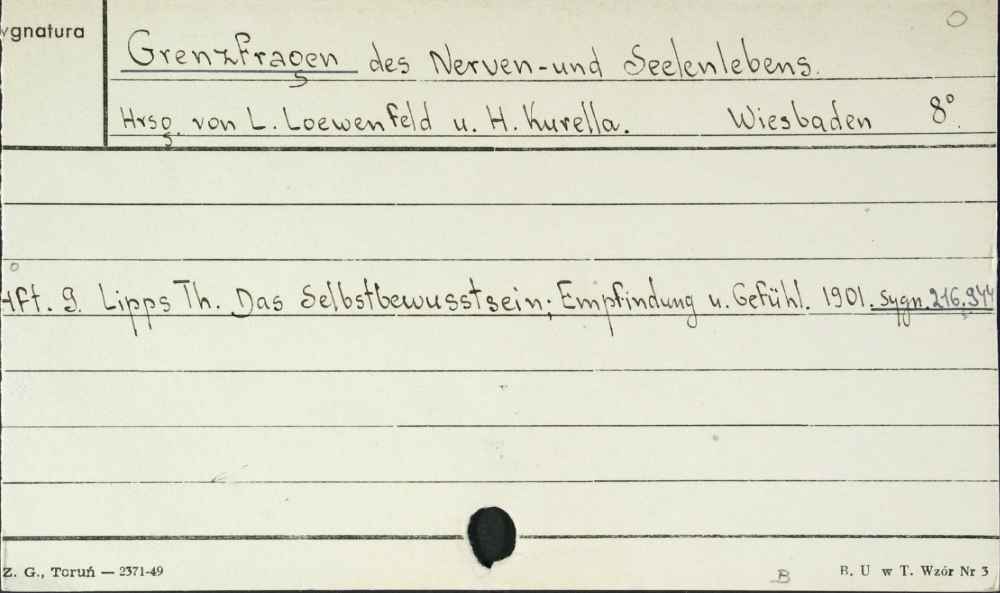 ygnatura
Grenzfragen des Nerven-und Seelenlebens.
Hrsg. von L. Loewenfeld u. H. Kurella. Wiesbaden 8°.
Hft. 9. Lipps Th. Das Selbstbewusstsein; Empfindung u. Gefühl. 1901. Sygn. 216.944
Z. G., Toruń — 2371-49
B
B. U w T. Wzór Nr 3